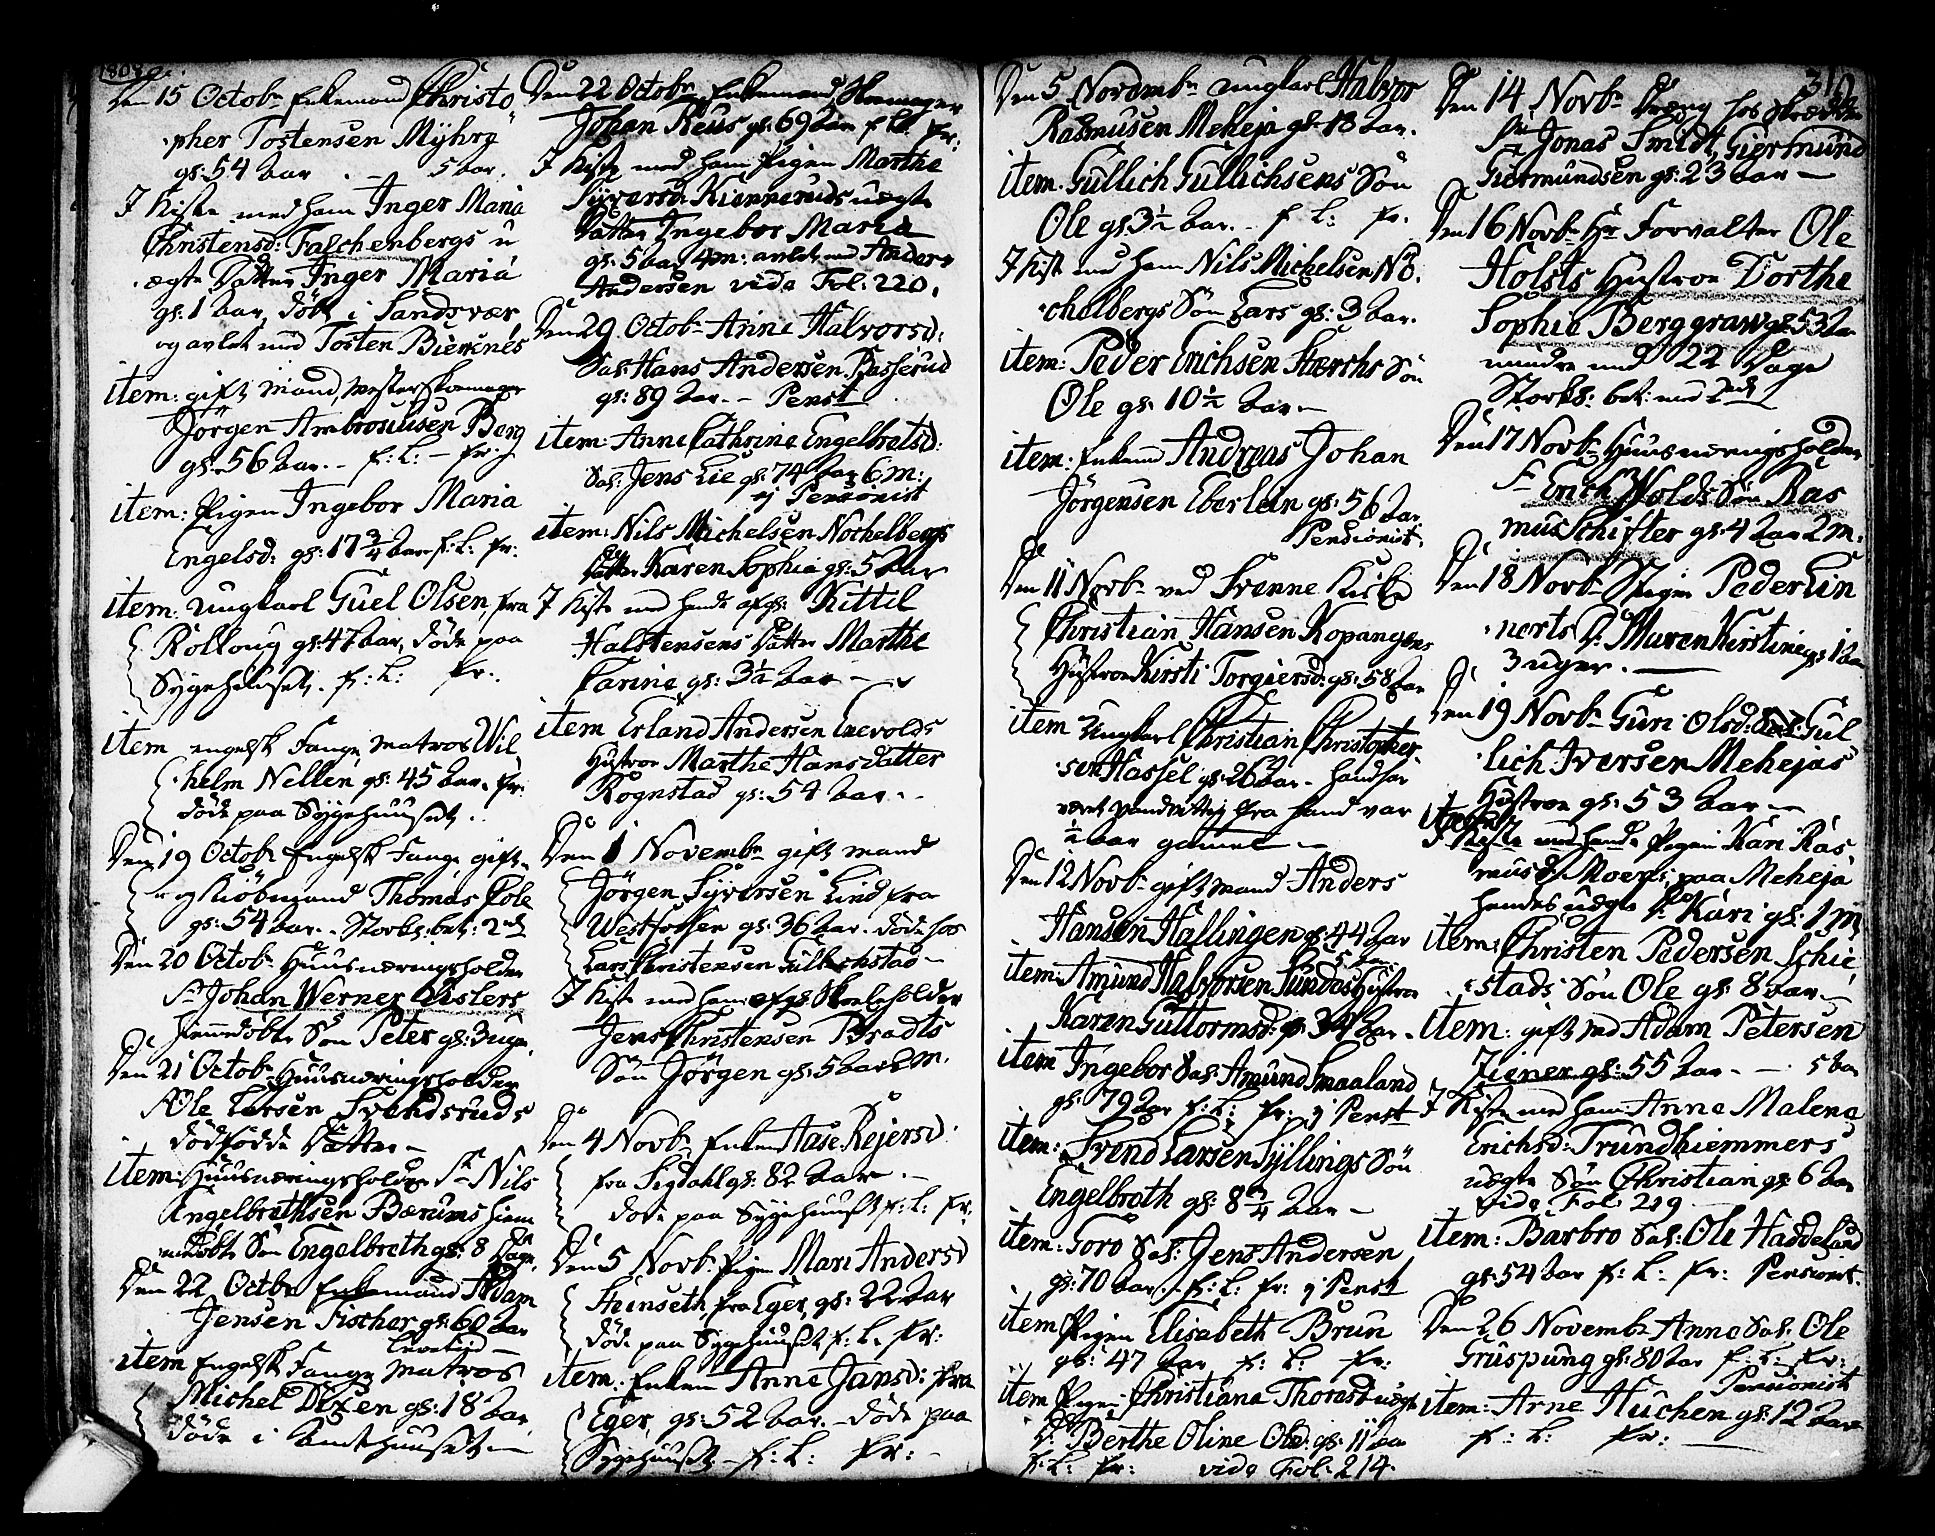 1808
Den 15 Octobr Enkemand Christo
pher Tostensen Myhra
gs: 54 Aar 5 Aar.
I Kiste med ham Inger Maria
Christensd: Falchenbergs u
ægte Datter Inger Maria
gs. 1 Aar, døbt i Sandsvær
og avlet med Tosten Biercnes
item: gift Mand, Mester Skomager
Jørgen Ambrosiusen Berg
gs. 56 Aar. f: L: fr:
item: Pigen Ingebor Maria
Engelsd: gs: 17 3/4 Aar f: L: fr:
item: Ungkarl Guel Olsen, fra
Rolloug gs: 47 Aar, døde paa
Sygehuuset. f: L: fr:
item engelsk Fange, Matros Wil
helm Nellen gs: 45 Aar. fr:
døde paa Sygehuuset.
Den 19 Octobr Engelsk Fange gift
og Kiøbmand Thomas Cole
gs: 54 Aar. Storks: bet: 2
Den 20 Octobr Huusnæringsholder
Sr Johan Werner Øislers
hiemedøbte Søn Peter gs: 3 uger
Den 21 Octobr Huusnæringsholder
Sr Ole Larsen Svendsruds
dødfødde Datter
item: Huusnæringsholder Sr Nils
Engelbrethsen Bærums hiem
medøbte Søn Engelbreth gs: 8 Dage
Den 22 Octbr Enkemand Adam
Jensen Fischer gs: 60 Aar
item Engelsk Fange Matros
Michel Dixen gs: 18 Aar
døde i Amthuuset
Den 22 Octobr Enkemand, Skomager
Johan Reus gs: 69 Aar f: L: fr:
I Kiste med ham Pigen Marthe
Syversd: Kiennerudes uægte
Datter Ingebor Maria
gs: 5 Aar 4 m: avlet med Anders
Andersen vide Fol: 220.
Den 29 Octobr Anne Halvorsd:
Sal: Hans Andersen Basserud
gs: 89 Aar. Penst
item: Anne Cathrine Engelbretsd:
Sal: Jens Lie gs: 74 Aar 6 M:
ej Pensionist
item: Nils Michelsen Nochelbergs
Datter Karen Sophia gs: 5 Aar
I Kiste med hende afgs: Kittil
Halstensens Datter Marthe
Carine gs: 3 1/2 Aar
item Erland Andersen Enevolds
Hustroe Marthe Hansdatter
Rognstad gs: 54 Aar.
Den 1 Novembr gift Mand
Jørgen Syversen Lind fra
Westfossen gs: 36 Aar. døde hos
Lars Christensen Gullichstad
I Kiste med ham afgs: Skoleholder
Jens Christensen Bradts
Søn Jørgen gs: 5 Aar M.
Den 4 Novbr Enken Aase Rejersd:
fra Sigdahl gs: 82 Aar.
døde paa Sygehuuset f: L: fr:
Den 5 Novbr Pigen Mari Andersd
Steinseth, fra Eger, gs: 22 Aar
døde paa Sygehuuset f: L. fr:
item: Enken Anne Jansd: fra
Eger, gs: 52 Aar. døde paa
Sygehuuset f: L: fr:
Den 5 Novembr Ungkarl Halvor
Rasmusen Meheja gs: 18 Aar.
item: Gullich Gullichsens Søn
Ole gs: 3 1/2 Aar. f: L: fr.
I Kiste med ham Nils Michelsen No
chelbergs Søn Lars gs: 3 Aar.
item: Peder Erichsen Stærchs Søn
Ole gs. 10 1/2 Aar
item: Enkem Andreas Johan
Jørgensen Eberlein gs: 56 Aar
Pensionist.
Den 11 Novbr ved Svenne Kirke
Christian Hansen Kopangens
Hustroe Kirsti Torgiersd: gs: 58 Aar
item Ungkarl Christian Christopher
sen Hassel gs: 26 Aar. hand har
været Vandvittig fra hand var
1/2 Aar gammel
Den 12 Novbr gift Mand Anders
Hansen Hallingen gs: 44 Aar
item: Amund Halvorsen Sundas Hustroe
Karen Guttormsd: gs: 34 Aar.
item Ingebor Sal: Amund Smaaland
gs: 79 Aar f: L: fr: ej Penst
item: Svend Larsen Syllings Søn
Engelbrath gs: 8 3/4 Aar
item: Goro Sal: Jens Andersen
gs: 70 Aar. f: L: fr: ej Penst
item Pigen Elisabeth Brun
gs: 47 Aar f: L: fr:
item Pigen Christiana Thorasd uægt
D: Berthe Oline Olsd: gs: 11 Aar
f: L: fr: vide Fol: 214.
310
Den 14 Novbr Dreng hos Skrædder
Sr Jonas Smidt, Giermund
Giermundsen gs: 23 Aar
Den 16 Novbr Hr Forvalter Ole
Holsts Hustroe Dorthe
Sophie Berggraw gs 53 Aar
mindre end 22 Dage
Storks: bet: med
Den 17 Novbr Huusnæringsholder
Sr Erich Wolds Søn Ras
mus Schifter gs: 4 Aar 2 m:
Den 18 Novbr Pigen Peder Lin
nerts D: Maren Kirstine gs 1 Aar
3 uger.
Den 19 Novbr Guri Olsd: Sal: Gul
lich Iversen Mehejas
Hustroe gs: 53 Aar
I Kiste med hende Pigen Kari Ras
musd Moens paa Meheja
hendes uægte D: Kari gs: 1 M
item: Christen Pedersen Schie
stads Søn Ole gs: 8 Aar
item: gift Md Adam Petersen
Ziener gs: 55 Aar. 5 Aar
I Kiste med ham Anna Malena
Erichsd: Trundhiemmers
uægte Søn Christian gs 6 Aar
vide Fol 219
item: Barbro Sal: Ole Haddeland
gs: 54 Aar f: L: fr: Pensionist.
Den 26 Novembr Anne Sal: Ole
Gruspung gs: 80 Aar f: L: fr:
Pensionist
item: Arne Huchen gs: 12 Aar
f: L: fr: